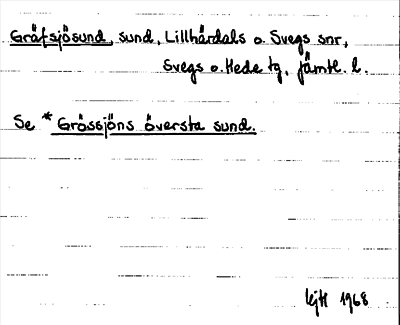 Gräfsjösund, sund, Lillhärdals o. Svegs snr,
Svegs o. Hede tg, Jämtl. l.
Se * Grössjöns översta sund.
1968